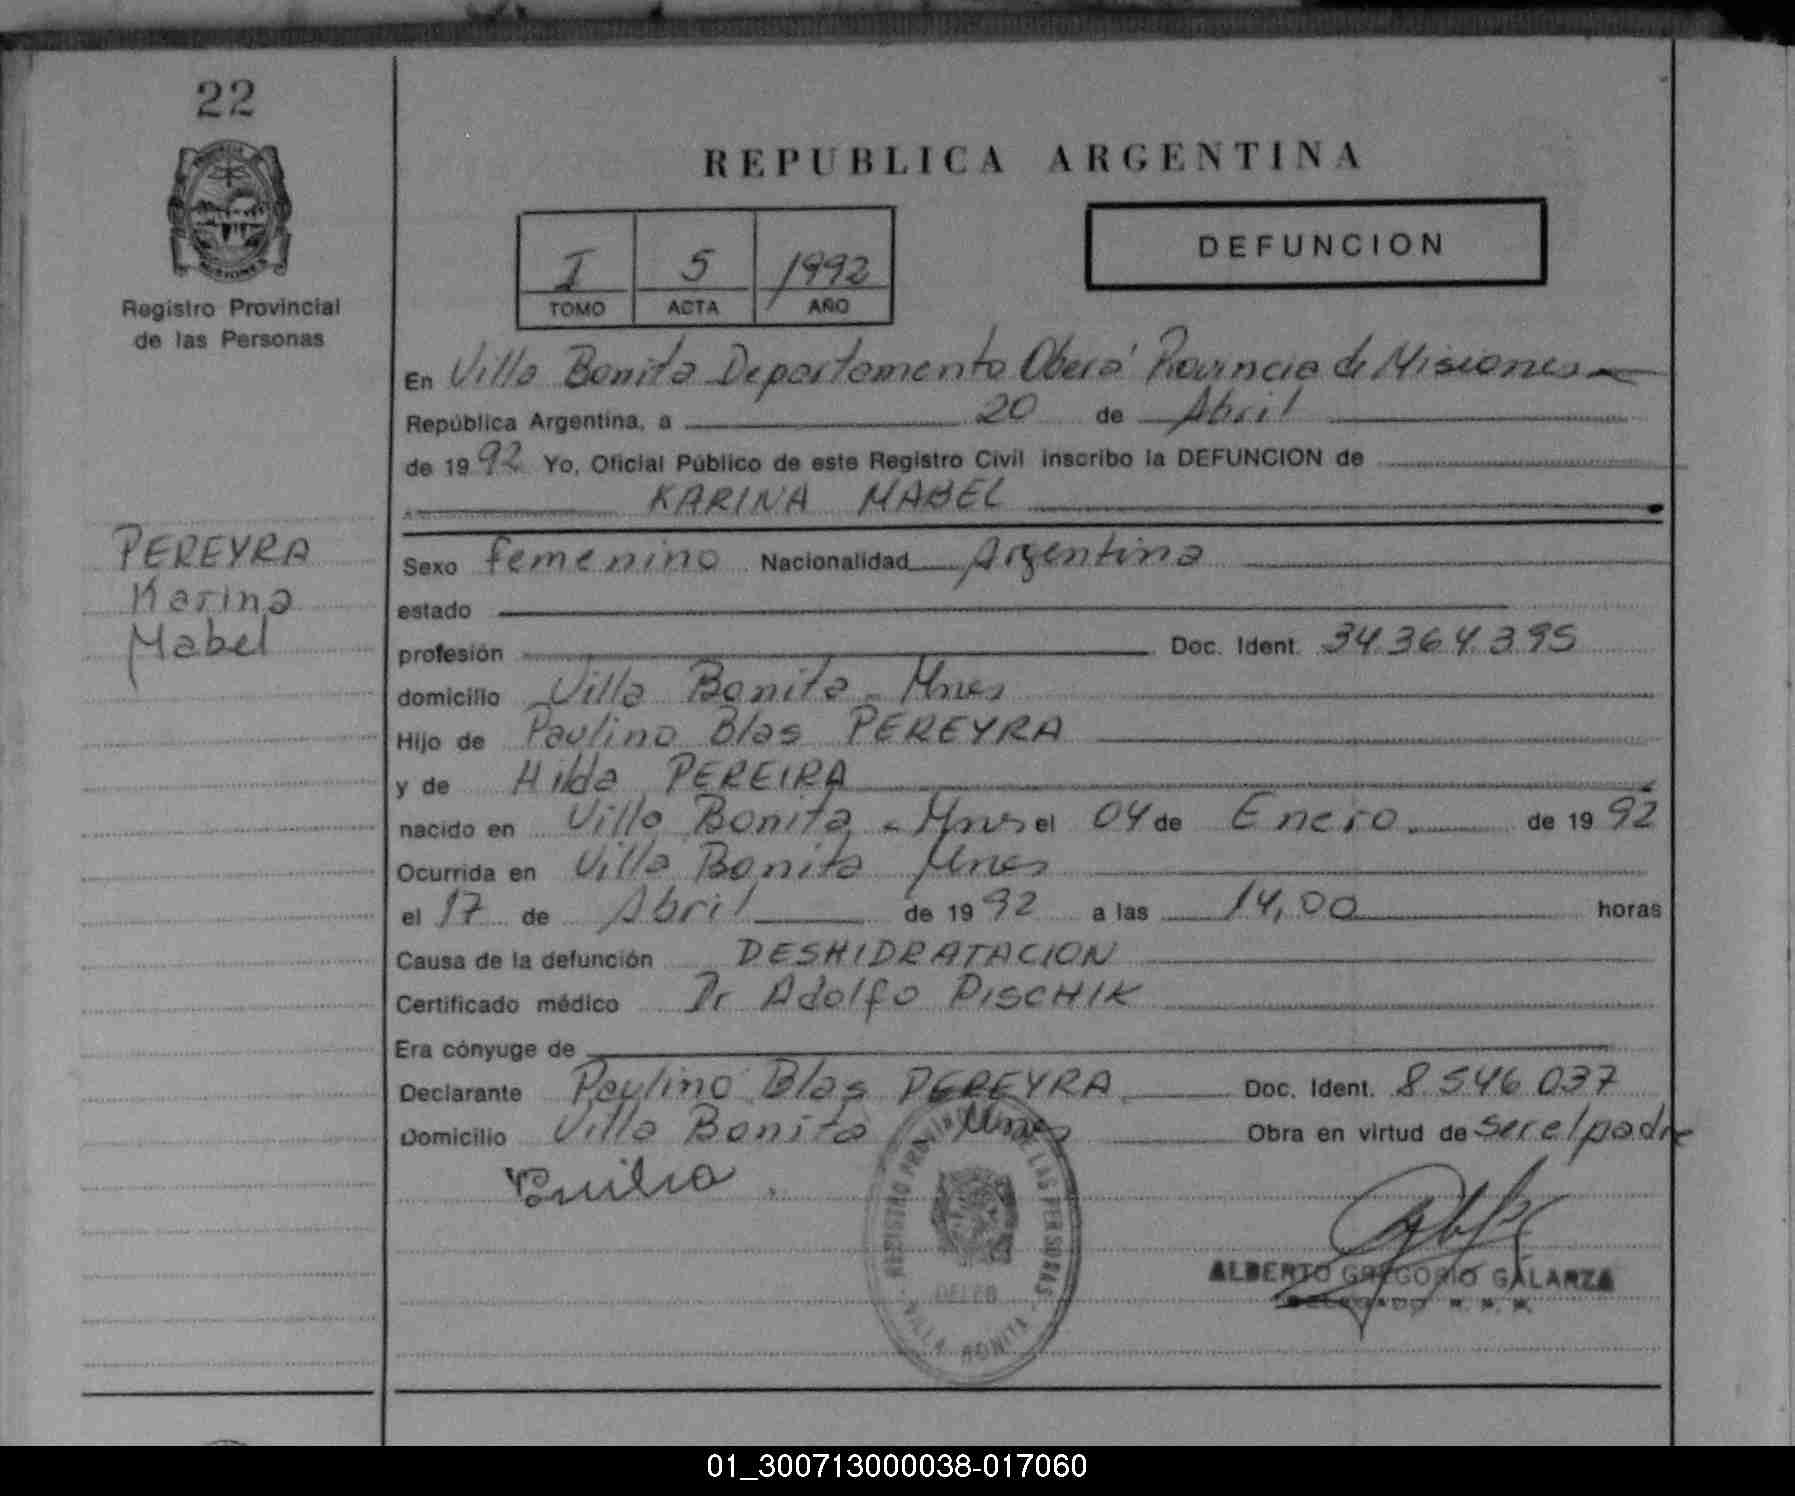 22
Registro Provincial
de las Personas
PEREYRA
Karina
Mabel
REPUBLICA ARGENTINA
I 5 1992
TOMO ACTA AÑO
DEFUNCION
En Villa Bonita Departamento Oberá Provincia de Misiones
República Argentina, a 20 de Abril
de 1992 Yo, Oficial Público de este Registro Civil inscribo la DEFUNCION de
KARINA MABEL
Sexo femenino Nacionalidad Argentina
estado
profesión Doc. Ident. 34.364.395
domicilio Villa Bonita - Mnes
Hijo de Paulino Blas PEREYRA
y de Hilda PEREIRA
nacido en Villa Bonita - Mnes el 04 de Enero de 1992
Ocurrida en Villa Bonita Mnes
el 17 de Abril de 1992 a las 14,00 horas
Causa de la defunción DESHIDRATACION
Certificado médico Dr Adolfo PISCHIK
Era cónyuge de
Declarante Paulino Blas PEREYRA Doc. Ident. 8.546.037
Domicilio Villa Bonita Mnes Obra en virtud de ser el padre
REGISTRO PROVINCIAL DE LAS PERSONAS
VILLA BONITA
ALBERTO GREGORIO GALARZA
DELEGADO
01_300713000038-017060